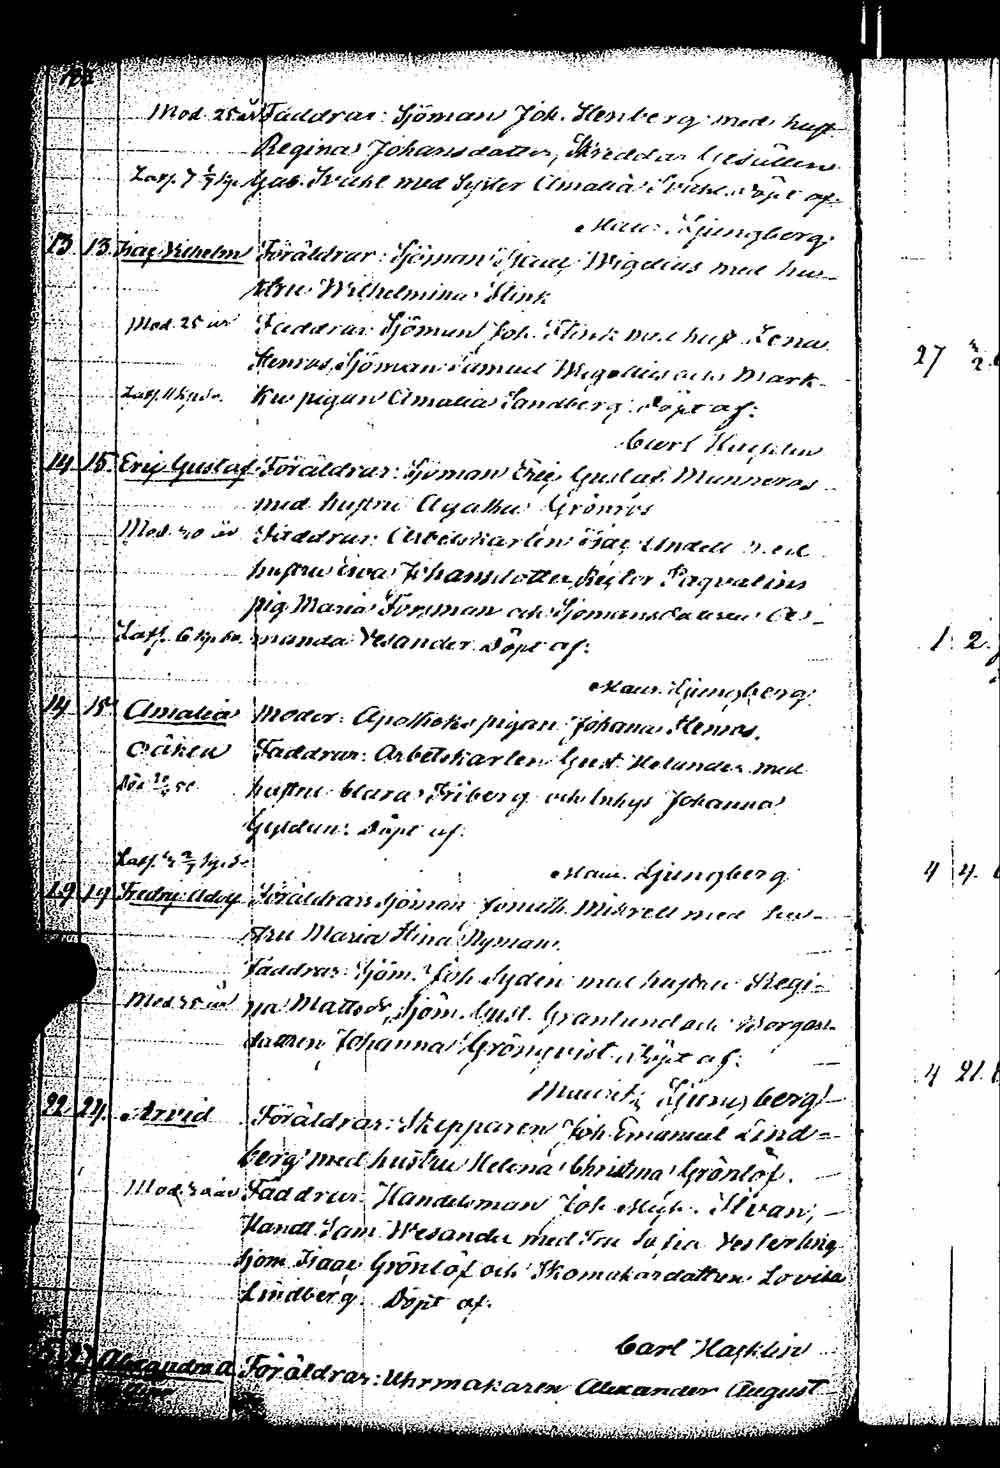 Mod. 25 år Faddrar: Sjöman Joh. Stenberg med hust
Regina Johansdotter, Skreddar Gesällen
Gab. Svahl med Syster Amalia Svahl. Döpt af:
Maur. Ljungberg.
13. 13. Isac Vilhelm Föräldrar: Sjöman Isaac Wigelius med hus-
tru Wilhelmina Flink
Mod. 25 år Faddrar: Sjöman Joh. Flink med hust Lena
Stenros, Sjöman Samuel Wigelius och Mark-
Kupigan Amalia Sandberg. Döpt af:
Carl Hasselin
14. 15. Eric Gustaf Föräldrar: Sjöman Eric Gustaf Munneros
med hustru Agatha Grönros
Mod. 20 år Faddrar: Arbetskarlen Isac Undell med
hustru Eva Johansdotter,
pig. Maria Forsman och Sjömansdautren A-
manda Vesander. Döpt af:
Maur. Ljungberg:
14. 15. Amalia Moder: Apotheks pigan Johana Stenros.
oäkta Faddrar: Arbetskarlen Gust. Helander med
hustru Clara Friberg och Inhys Johanna
Gylden: Döpt af:
Maur. Ljungberg
19 19 Fredric Adolf Föräldrar: Sjöman med hus-
tru Maria Stina Nyman.
Faddrar: Sjöm. Joh. Syden med hustru Regi-
Mod. 35 år na Mattsdr, Sjöm. Gust. Granlund och Borgare
dautren Johanna Grönqvist. Döpt af:
Mauritz Ljungberg
22. 24. Arvid Föräldrar: Skepparen Joh. Emanuel Lind-
berg med hustru Helena Christina Grönlöf.
Faddrar: Handelsman Joh.
Handl. Sam. Wesander med Fru Sofia Vesterling
Sjöm. Isaac Grönlöf och Skomakardottren Lovisa
Lindberg. Döpt af:
Carl Hasselin
Föräldrar: Uhrmakaren Alexander August
27
1. 2.
4 4.
4 21.